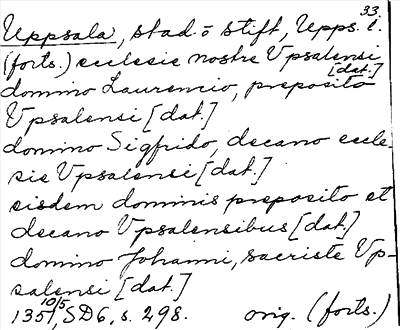 33.
Uppsala, stad o stift, Upps. l.
(forts.) ecclesie nostre Vpsalensi
[dat.]
domino Laurencio, preposito
Vpsalensi [dat.]
domino Sigfrido, decano eccle-
sie Vpsalensi [dat.]
eisdem dominis preposito et
decano Vpsalensibus [dat.]
domino Johanni, sacriste Vp-
salensi [dat.]
1351 10/5, SD6, s. 298. orig. (forts.)